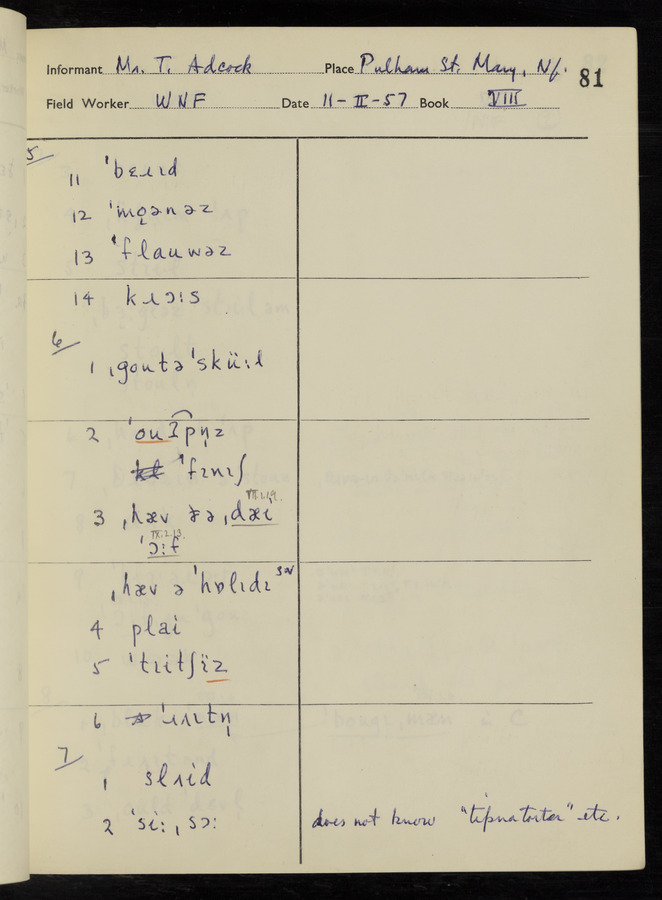 Informant Mr. T. Adcock Place Pulham St. Mary, Nf. 81
Field Worker WNF Date 11-II-57 Book VIII
5
11 ˈbɛɹɪd
12 ˈmo̜ənəz
13 ˈflauwəz
14 kɹɔːs
6
1 ˌgoutəˈsküːɫ
2 ˈouʔpn̩z
ˈfɪnɪʃ
VII.1.19.
3 ˌhæv ðə ˌdæi
VII.2.13.
ˈɔːf
ˌhæv ə ˈhɒlɪdɪ sw
4 plai
5 ˈtɹitʃïz
6 ˈɹʌɪtn̩
7
1 slʌid
2 ˈsiːˌsɔː does not know "tipnatorter" etc.